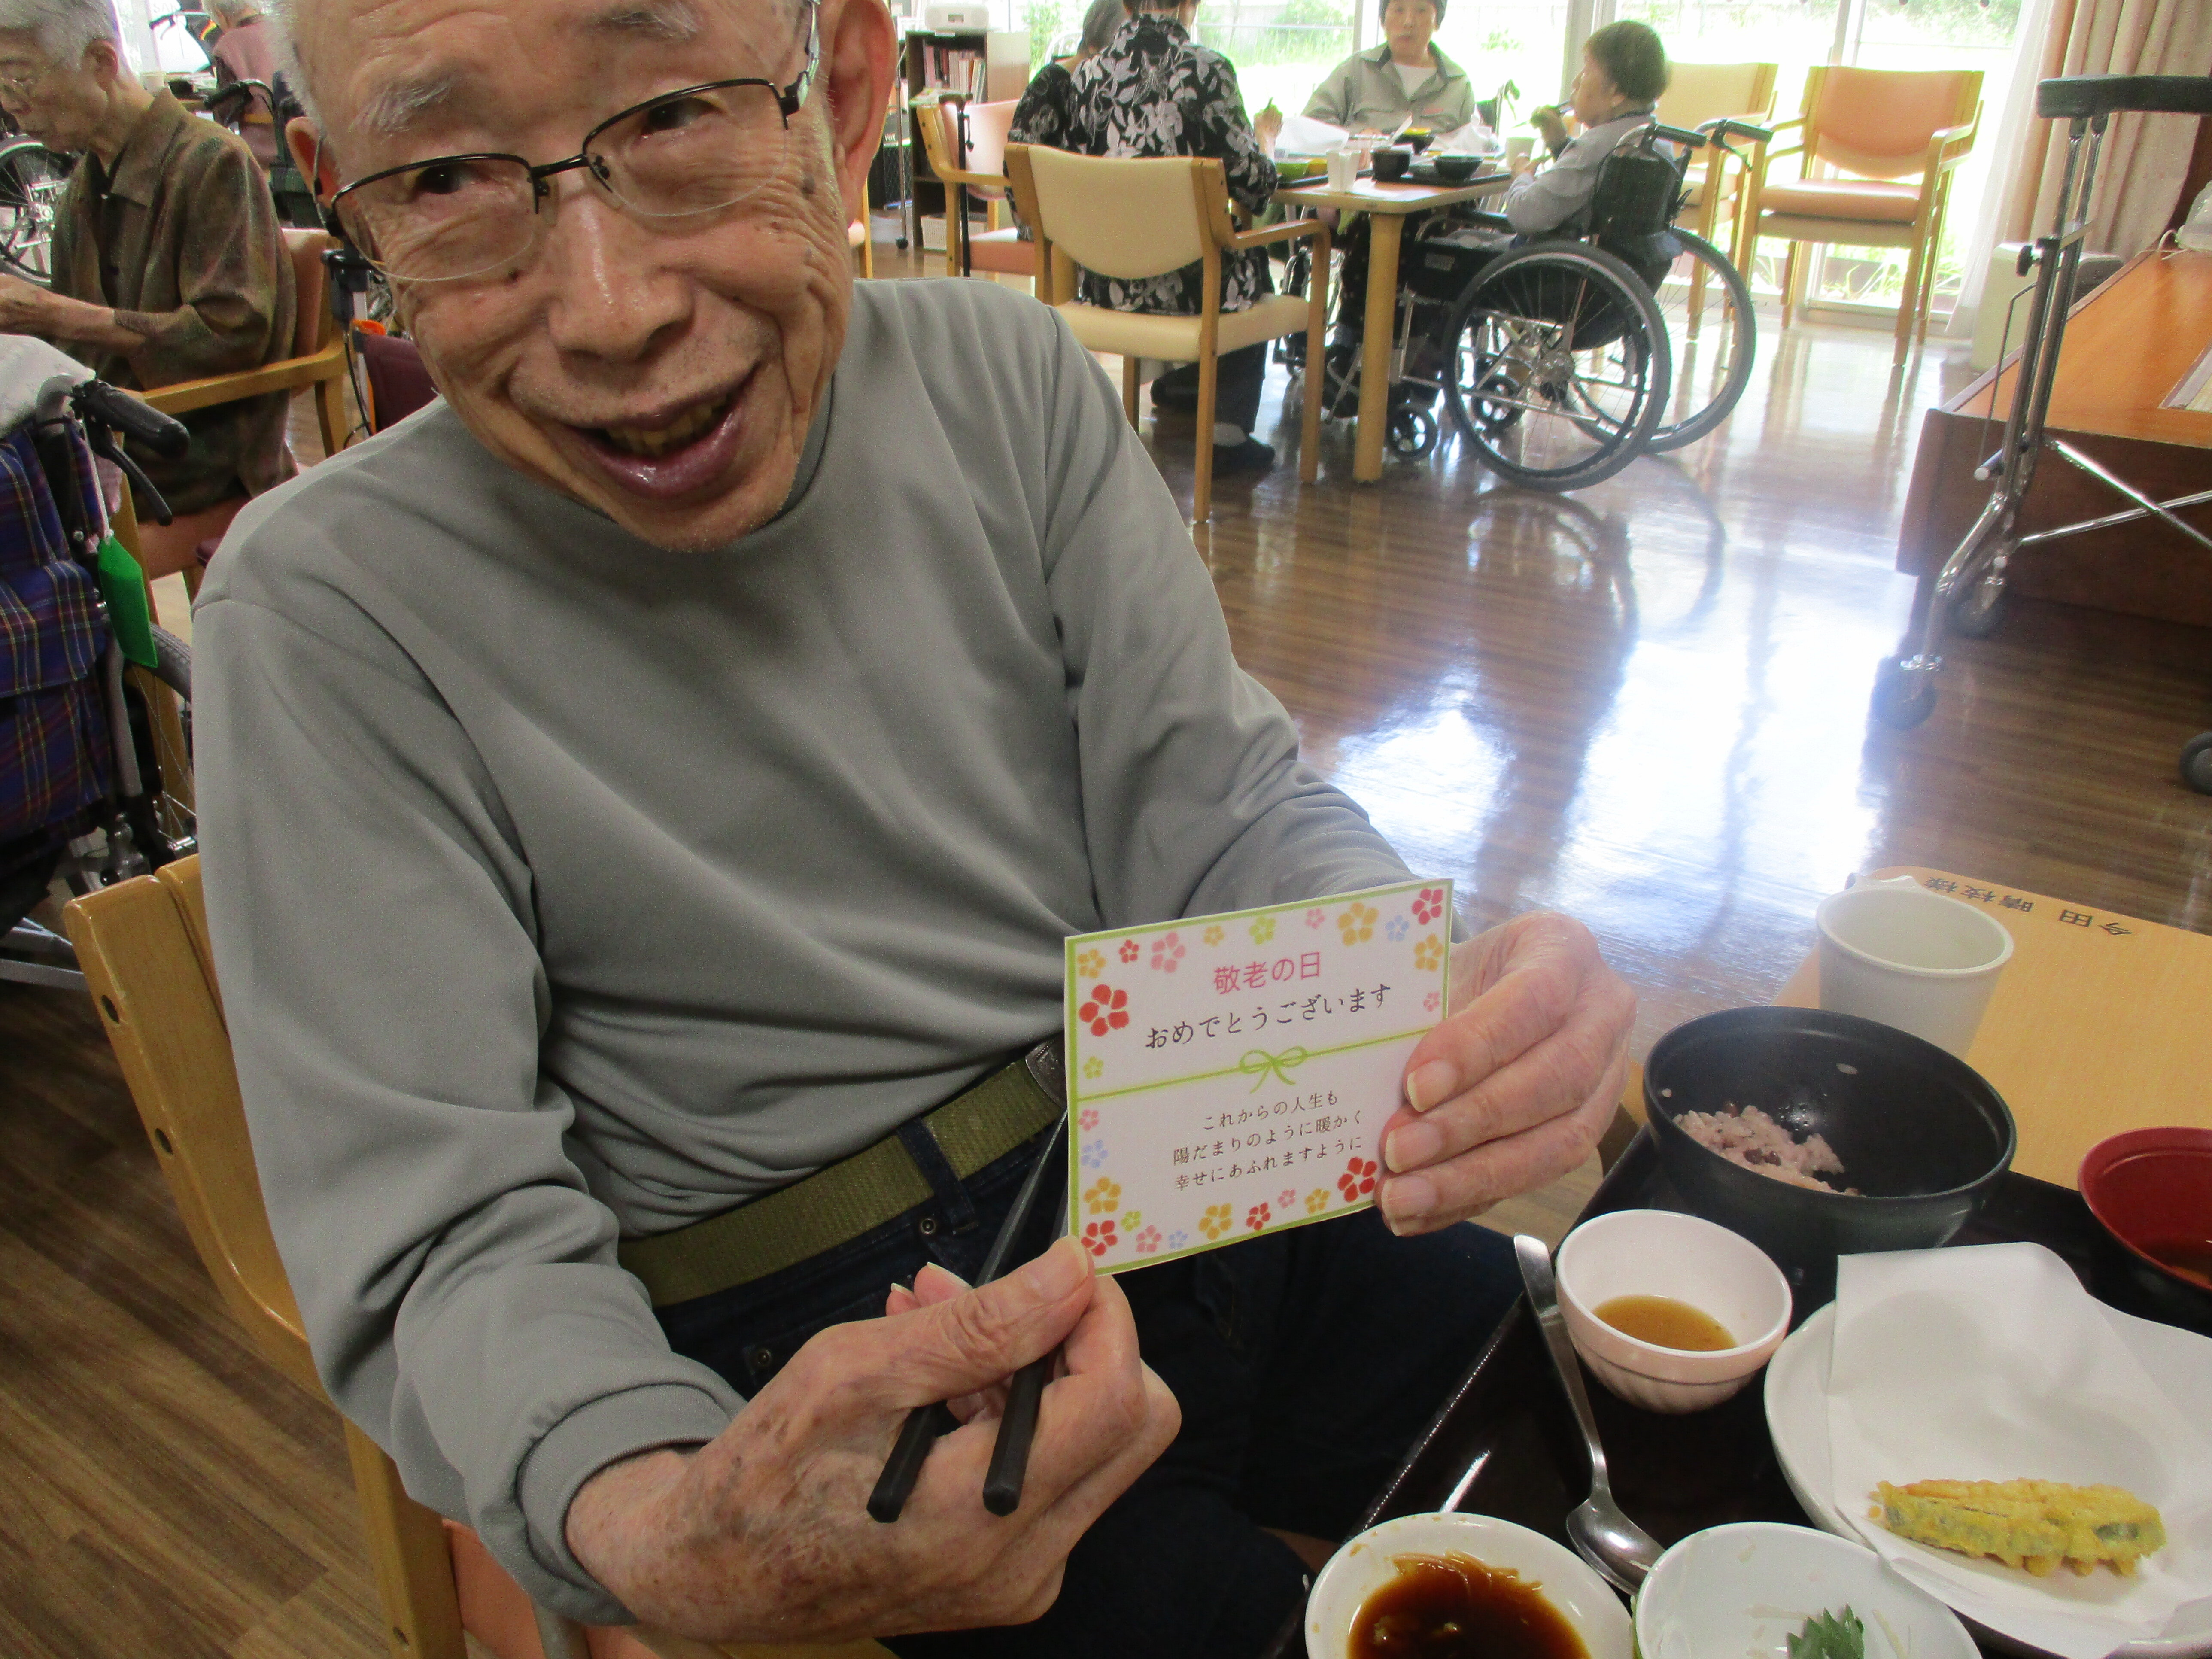 敬老の日
おめでとうございます
これからの人生も
陽だまりのように暖かく
幸せにあふれますように
今田 晴枝様